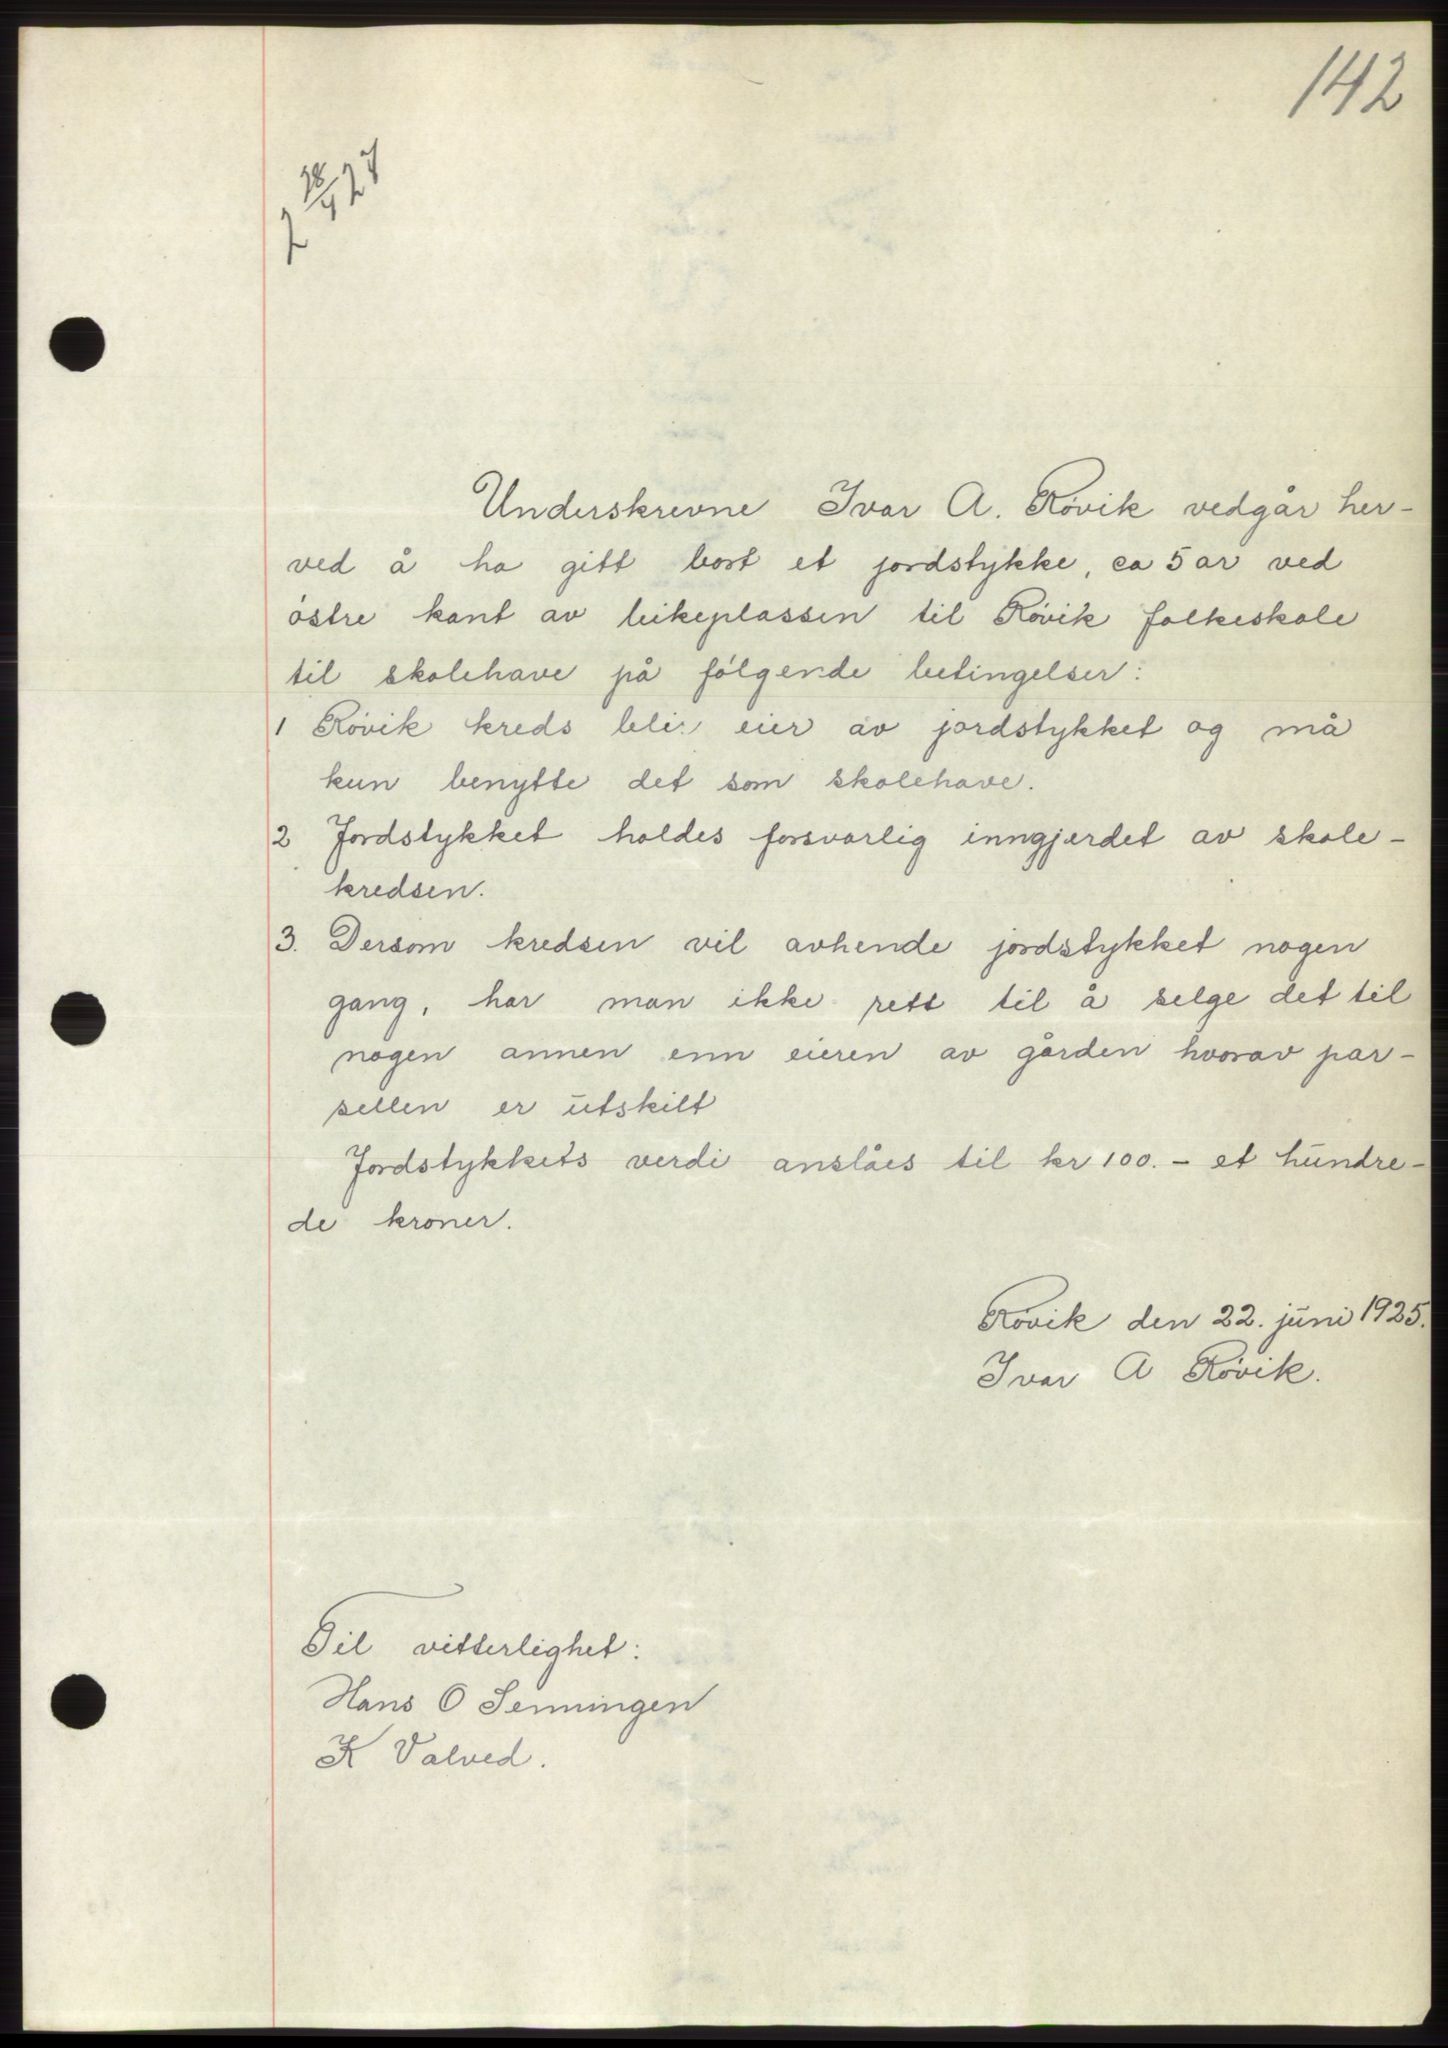 142
28/4 27
Underskrevne Ivar A. Røvik vedgår her-
ved å ha gitt bort et jordstykke, ca 5 ar ved
østre kant av leikeplassen til Røvik folkeskole
til skolehave på følgende betingelser:
1 Røvik kreds blir eier av jordstykket og må
kun benytte det som skolehave.
2 Jordstykket holdes forsvarlig inngjerdet av skole-
kredsen.
3. Dersom kredsen vil avhende jordstykket nogen
gang, har man ikke rett til å selge det til
nogen annen enn eieren av gården hvorav par-
sellen er utskilt
Jordstykkets verdi anslåes til kr 100.- et hundre-
de kroner.
Røvik den 22. juni 1925.
Ivar A Røvik.
Til vitterlighet:
Hans O Senningen
K Valved.